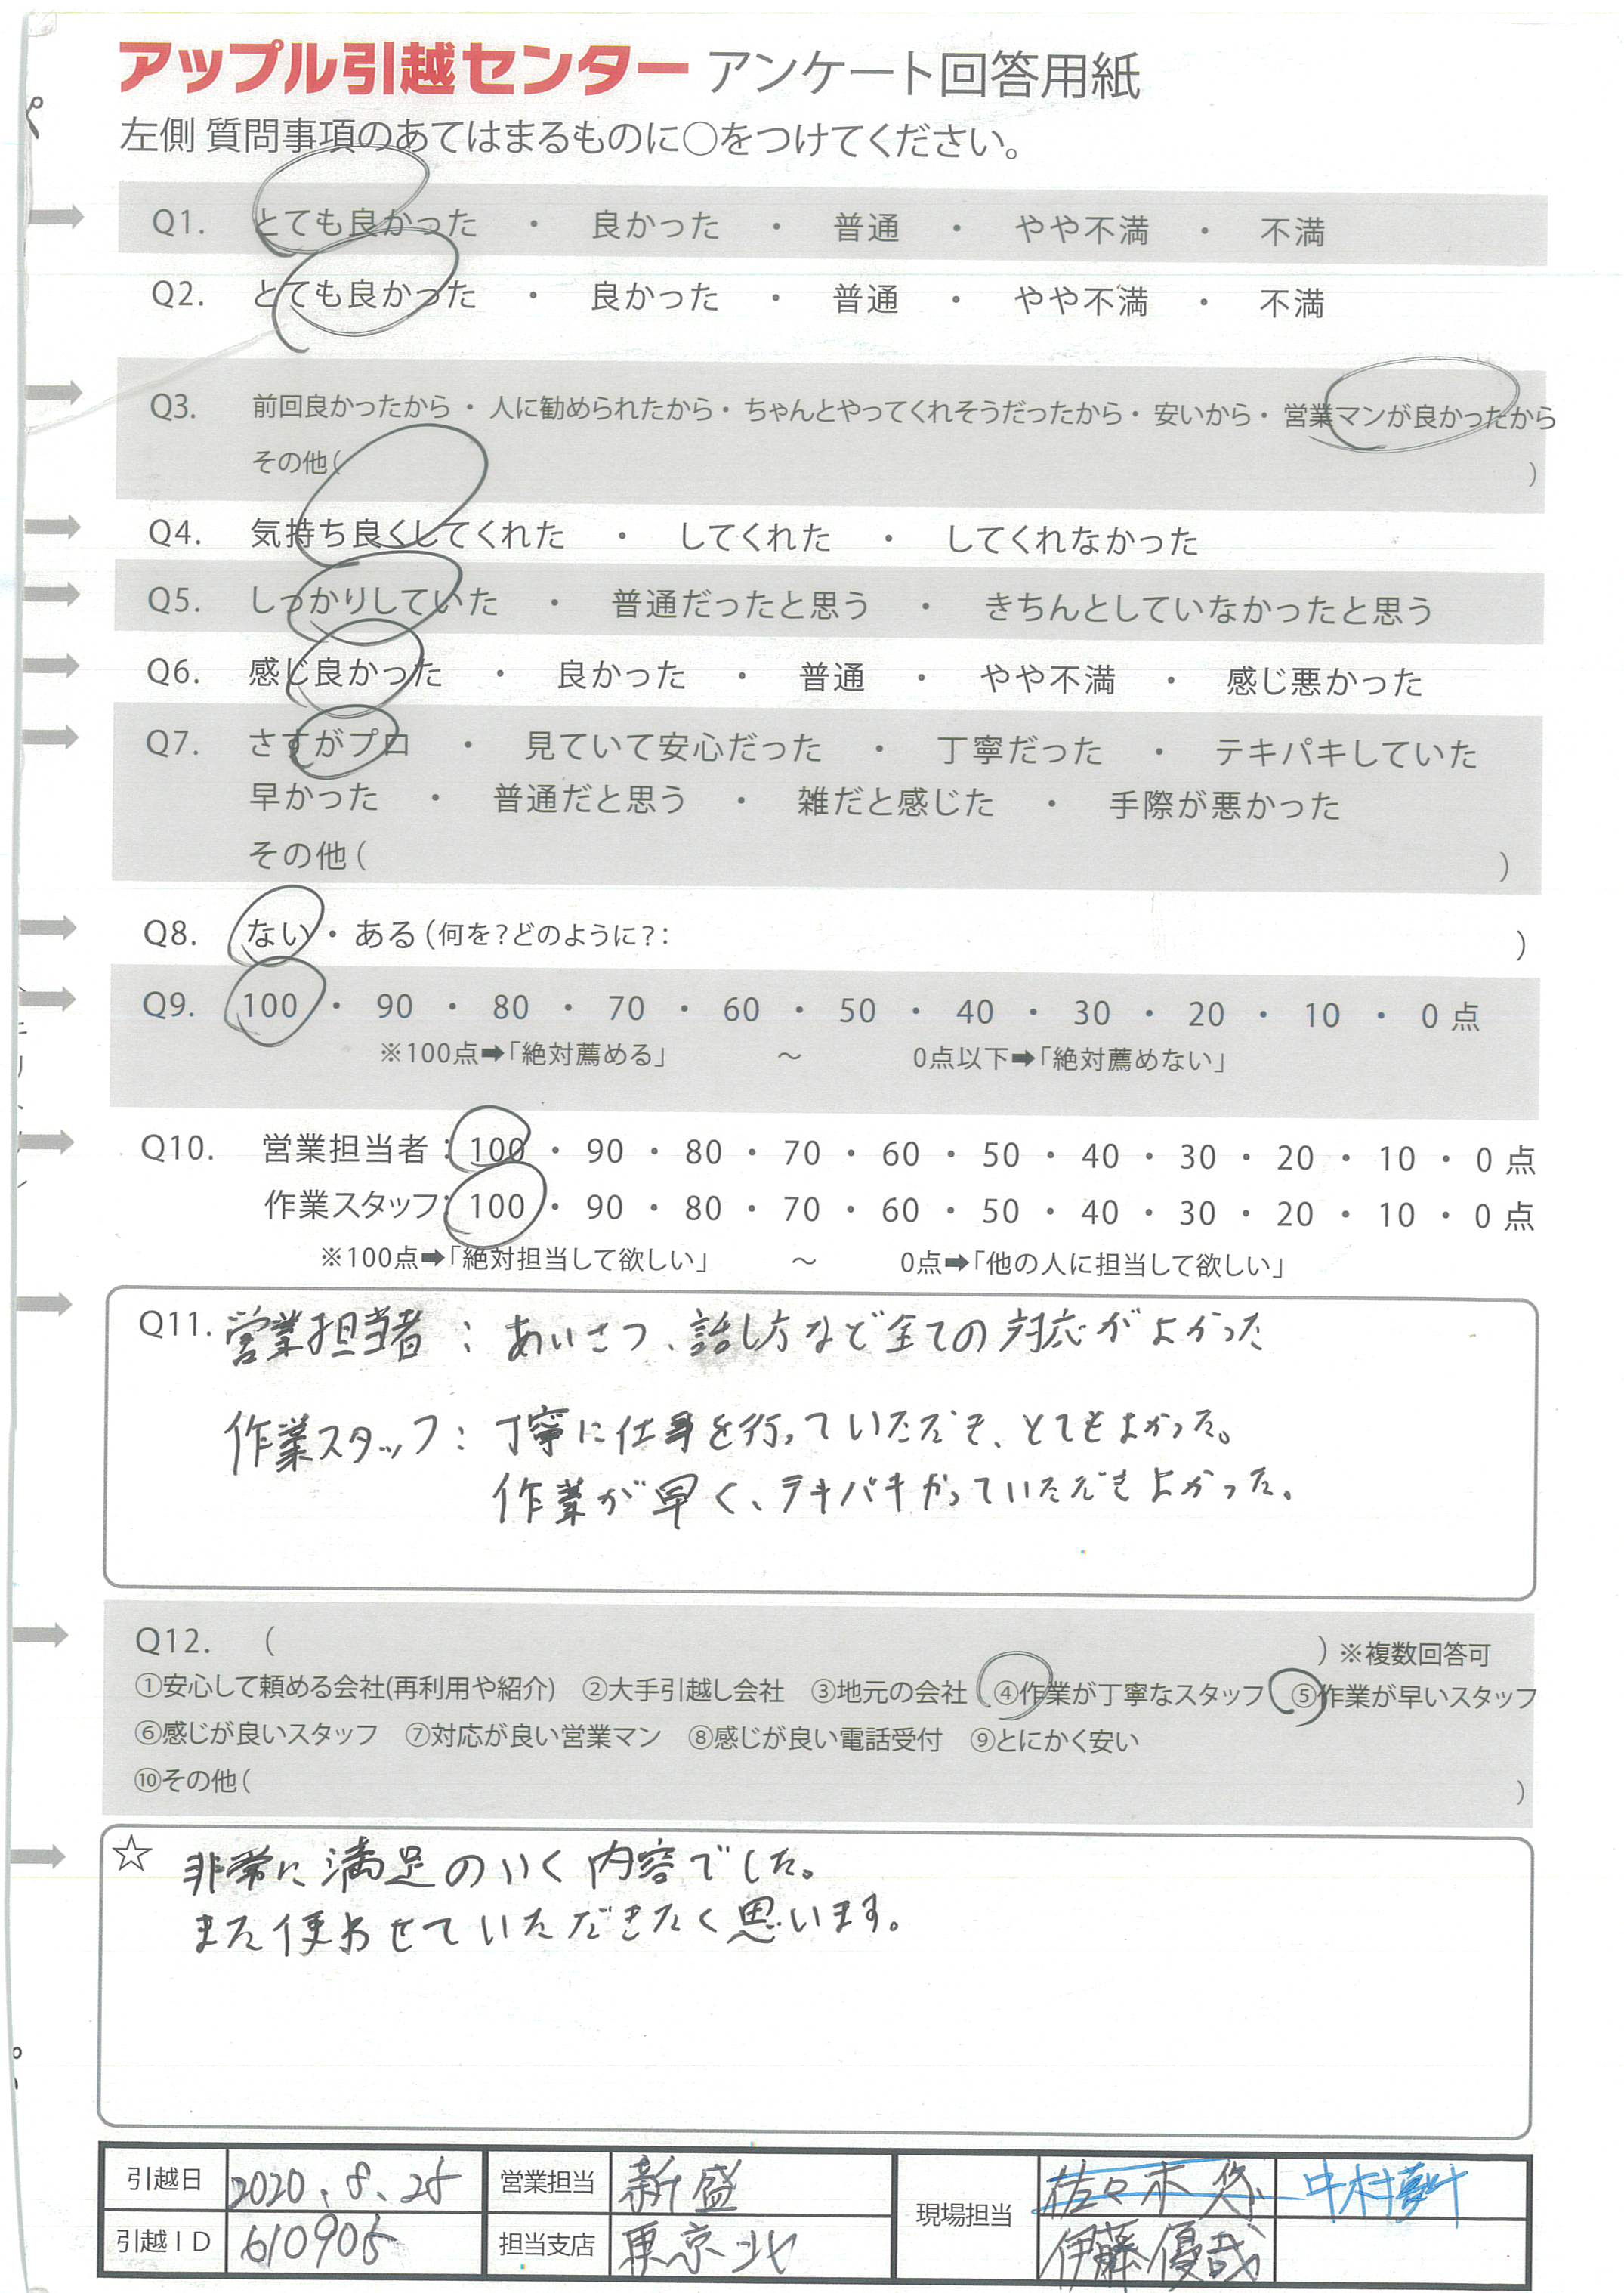 アップル引越センター アンケート回答用紙
左側 質問事項のあてはまるものに○をつけてください。
Q1. とても良かった ・ 良かった ・ 普通 ・ やや不満 ・ 不満
Q2. とても良かった ・ 良かった ・ 普通 ・ やや不満 ・ 不満
Q3. 前回良かったから ・ 人に勧められたから ・ ちゃんとやってくれそうだったから ・ 安いから ・ 営業マンが良かったから
その他( )
Q4. 気持ち良くしてくれた ・ してくれた ・ してくれなかった
Q5. しっかりしていた ・ 普通だったと思う ・ きちんとしていなかったと思う
Q6. 感じ良かった ・ 良かった ・ 普通 ・ やや不満 ・ 感じ悪かった
Q7. さすがプロ ・ 見ていて安心だった ・ 丁寧だった ・ テキパキしていた
早かった ・ 普通だと思う ・ 雑だと感じた ・ 手際が悪かった
その他( )
Q8. ない ・ ある (何を?どのように?: )
Q9. 100 ・ 90 ・ 80 ・ 70 ・ 60 ・ 50 ・ 40 ・ 30 ・ 20 ・ 10 ・ 0 点
※100点➡「絶対薦める」 ～ 0点以下➡「絶対薦めない」
Q10. 営業担当者: 100 ・ 90 ・ 80 ・ 70 ・ 60 ・ 50 ・ 40 ・ 30 ・ 20 ・ 10 ・ 0 点
作業スタッフ: 100 ・ 90 ・ 80 ・ 70 ・ 60 ・ 50 ・ 40 ・ 30 ・ 20 ・ 10 ・ 0 点
※100点➡「絶対担当して欲しい」 ～ 0点➡「他の人に担当して欲しい」
Q11. 営業担当者：あいさつ、話し方など全ての対応がよかった
作業スタッフ：丁寧に仕事を行っていただき、とてもよかった。
作業が早く、テキパキやっていただきよかった。
Q12. ( ) ※複数回答可
①安心して頼める会社(再利用や紹介) ②大手引越し会社 ③地元の会社 ④作業が丁寧なスタッフ ⑤作業が早いスタッフ
⑥感じが良いスタッフ ⑦対応が良い営業マン ⑧感じが良い電話受付 ⑨とにかく安い
⑩その他( )
☆ 非常に満足のいく内容でした。
また使わせていただきたく思います。
引越日 2020.8.25 営業担当 新盛 現場担当 佐々木 悠 中村夢叶
引越ＩＤ 610905 担当支店 東京北 伊藤優哉